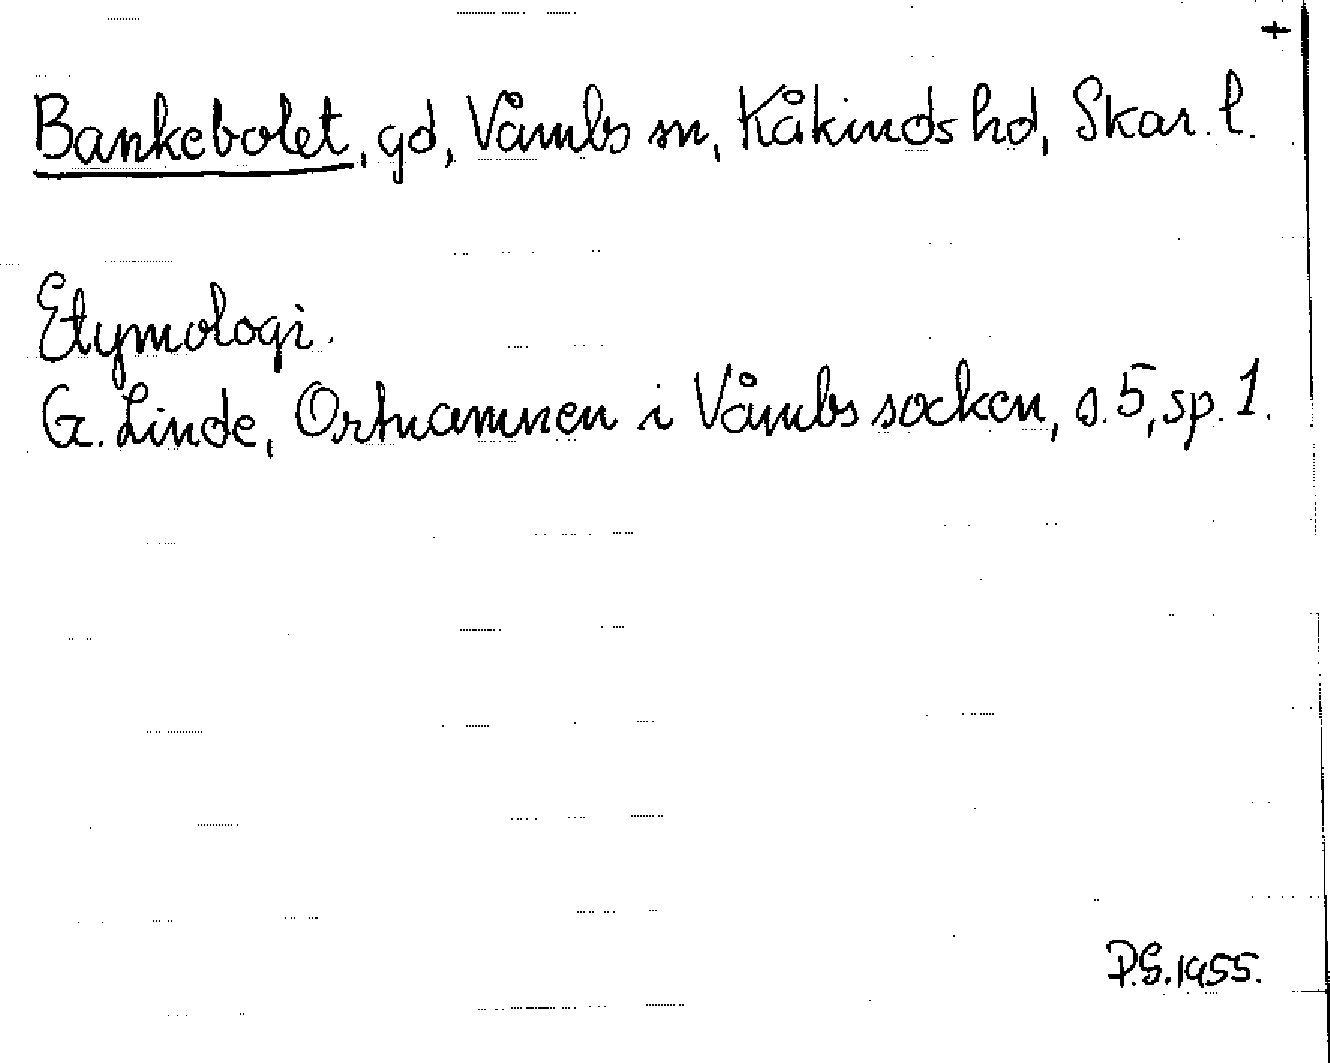 +
Bankebolet, gd, Våmbs sn, Kåkinds hd, Skar. l.
Etymologi.
G. Linde, Ortnamnen i Våmbs socken, s. 5, sp. 1.
P.S. 1955.